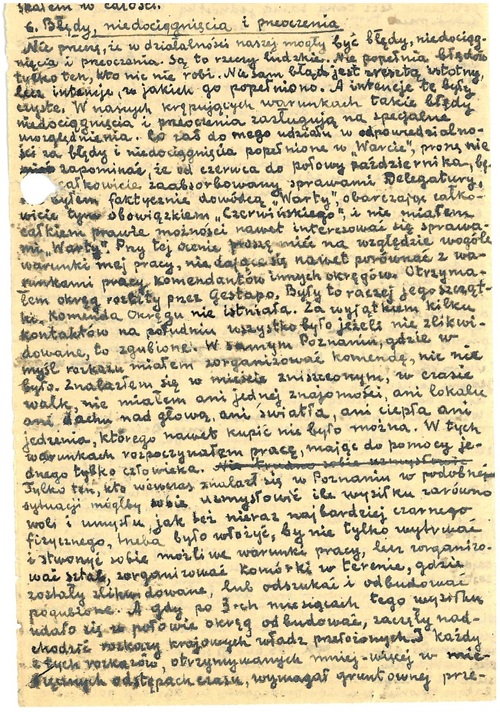 skatem w całości.
6. Błędy, niedociągnięcia i przeoczenia
Nie przeczę, że w działalności naszej mogły być błędy, niedociąg-
nięcia i przeoczenia. Są to rzeczy ludzkie. Nie popełnia błędów
tylko ten, kto nic nie robi. Nie sam błąd jest zresztą istotny,
lecz intencje, w jakich go popełniono. A intencje te były
czyste. W naszych krępujących warunkach takie błędy
niedociągnięcia i przeoczenia zasługują na specjalne
uwzględnienie. Co zaś do mego udziału w odpowiedzialno-
ści za błędy i niedociągnięcia popełnione w "Warcie", proszę nie
zapominać, że od czerwca do połowy października, bę-
całkowicie zaabsorbowany sprawami Delegatury,
nie byłem faktycznie dowódcą "Warty", obarczając całko-
wicie tym obowiązkiem "Czerwińskiego", i nie miałem
całkiem prawie możności nawet interesować się sprawa-
mi "Warty". Przy tej ocenie proszę mieć na względzie wogóle
warunki mej pracy, nie dające się nawet porównać z wa-
runkami pracy komendantów innych okręgów. Otrzyma-
łem okręg rozbity przez Gestapo. Były to raczej jego szcząt-
ki. Komenda Okręgu nie istniała. Za wyjątkiem kilku
kontaktów na południu wszystko było jeżeli nie zlikwi-
dowane, to zgubione. W samym Poznaniu, gdzie w
myśl rozkazu miałem zorganizować komendę, nic nie
było. Znalazłem się w mieście zniszczonym, w czasie
walk, nie miałem ani jednej znajomości, ani lokalu
ani dachu nad głową, ani światła, ani ciepła ani
jedzenia, którego nawet kupić nie było można. W tych
warunkach rozpocząłem pracę, mając do pomocy je-
dnego tylko człowieka. Nie trudno sobie uzmysłowić
Tylko ten, kto wówczas znalazł się w Poznaniu w podobnej
sytuacji mógłby sobie uzmysłowić ile wysiłku zarówno
woli i umysłu, jak też nieraz najbardziej czarnego
fizycznego, trzeba było włożyć, by nie tylko wytrwać
i stworzyć sobie możliwe warunki pracy, lecz zorganizo-
wać sztab, zorganizować komórki w terenie, gdzie
zostały zlikwidowane, lub odszukać i odbudować
pogubione. A gdy po 3-ch miesiącach tego wysiłku
udało się w połowie okręg odbudować, zaczęły nad-
chodzić rozkazy krajowych władz przełożonych. I każdy
z tych rozkazów, otrzymywanych mniej-więcej w mie-
sięcznych odstępach czasu, wymagał gruntownej prze-